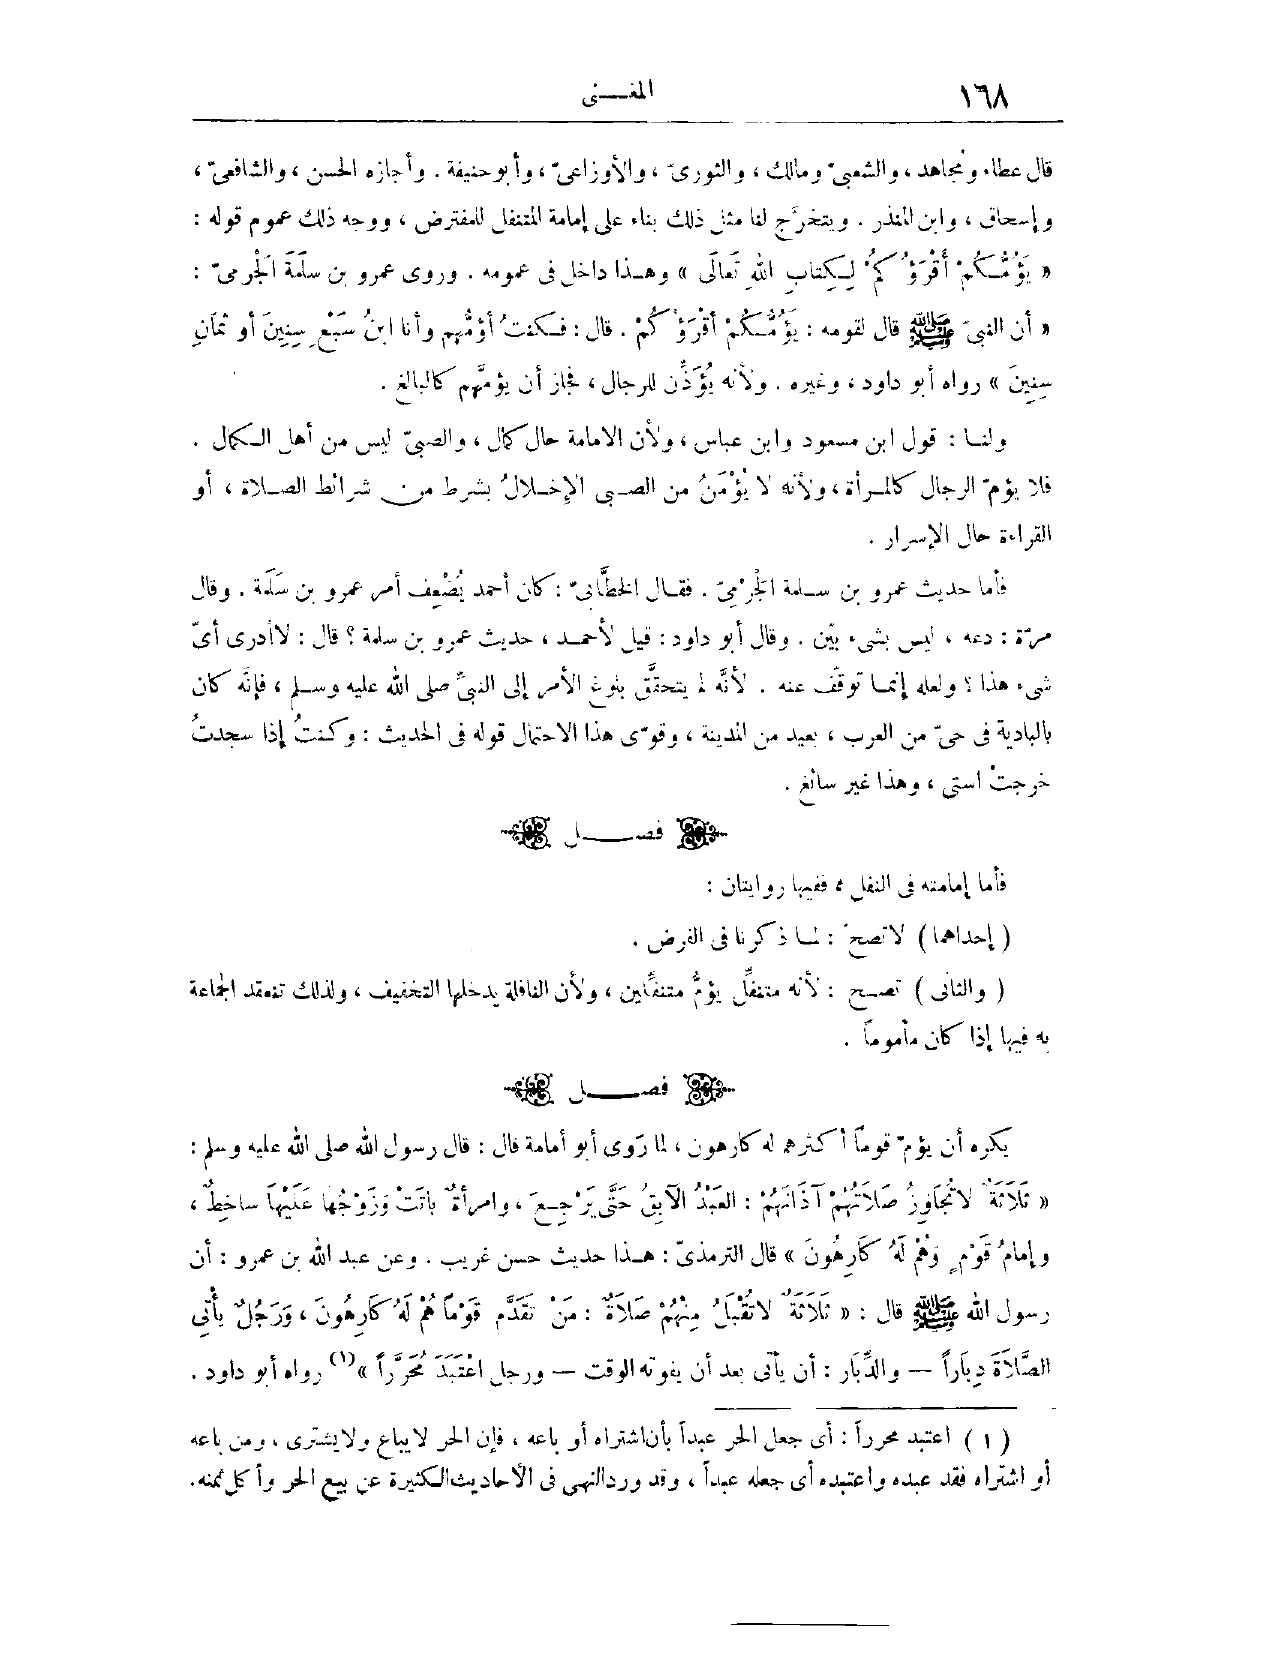 ١٦٨
المغـــنى
قال عطاء ومجاهد ، والشعبىّ ومالك ، والثورىّ ، والأوزاعىّ ، وأبو حنيفة . وأجازه الحسن ، والشافعىّ ،
وإسحاق ، وابن المنذر . ويتخرَّج لنا مثل ذلك بناء على إمامة المتنفل للمفترض ، ووجه ذلك عموم قوله :
« يَؤُمُّـكُمْ أَقْرَؤُكُمْ لِـكِتابِ اللهِ تَعَالَى » وهـذا داخل فى عمومه . وروى عمرو بن سَلَمَةَ الْجَرْمىّ :
« أن النبىّ ﷺ قال لقومه : يَؤُمُّـكُمْ أَقْرَؤُكُمْ . قال : فـكنتُ أؤمُّهم وأنا ابنُ سَبْعِ سِنِينَ أو ثمَانِ
سِنِينَ » رواه أبو داود ، وغيره . ولأنه يُؤَذِّن للرجال ، فجاز أن يؤمَّهم كالبالغ .
ولنـا : قول ابن مسعود وابن عباس ، ولأن الامامة حال كمال ، والصبىّ ليس من أهل الـكمال .
فلا يؤمّ الرجال كالمـرأة ، ولأنه لا يُؤْمَنُ من الصـبى الإخـلالُ بشرط من شرائط الصـلاة ، أو
القراءة حال الإسرار .
فأما حديث عمرو بن سـلمة الْجَرْمِىّ . فقـال الخطَّابىّ : كان أحمد يُضْعِف أمر عمرو بن سَلَمَة . وقال
مرّة : دعه ، ليس بشىء بيّن . وقال أبو داود : قيل لأحمـد ، حديث عمرو بن سلمة ؟ قال : لاأدرى أىّ
شىء هذا ؟ ولعله إنمـا توقَّف عنه . لأنَّه لم يتحقَّق بلوغ الأمر إلى النبىِّ صلى الله عليه وسـلم ، فإنَّه كان
بالبادية فى حىّ من العرب ، بعيد من المدينة ، وقوّى هذا الاحتمال قوله فى الحديث : وكنتُ إذا سجدتُ
خرجتْ استى ، وهذا غير سائغ .
فصــــل
فأما إمامته فى النفل ، ففيها روايتان :
( إحداهما ) لاتصحّ : لمـا ذكرنا فى الفرض .
( والثانى ) تصـح : لأنه متنفِّل يؤمُّ متنفِّلين ، ولأن النافلة يدخلها التخفيف ، ولذلك تنعقد الجماعة
به فيها إذا كان مأموماً .
فصــــل
يكره أن يؤمّ قوماً أكثرهم له كارهون ، لما رَوى أبو أمامة قال : قال رسول الله صلى الله عليه وسلم :
« ثَلَاثَةٌ لاتُجَاوِزُ صَلَاتُهُمْ آذَانَهُمْ : العَبْدُ الْآبِقُ حَتَّى يَرْجِـعَ ، وامرأةٌ باتَتْ وَزَوْجُها عَلَيْهَا ساخِطٌ ،
وإمامُ قَوْمٍ وَهُمْ لَهُ كَارِهُونَ » قال الترمذىّ : هـذا حديث حسن غريب . وعن عبد الله بن عمرو : أن
رسول الله ﷺ قال : « ثَلَاثَةٌ لاتُقْبَلُ مِنْهُمْ صَلَاةٌ : مَنْ تَقَدَّم قَوْماً هُمْ لَهُ كَارِهُونَ ، وَرَجُلٌ يأْتِى
الصَّلَاةَ دِبَاراً — والدِّبَار : أن يأتى بعد أن يفوته الوقت — ورجل اعْتَبَدَ مُحَرَّراً »(١) رواه أبو داود .
( ١ ) اعتبد محرراً : أى جعل الحر عبداً بأن اشتراه أو باعه ، فإن الحر لايباع ولايشترى ، ومن باعه
أو اشتراه فقد عبده واعتبده أى جعله عبداً ، وقد ورد النهى فى الأحاديث الكثيرة عن بيع الحر وأكل ثمنه.